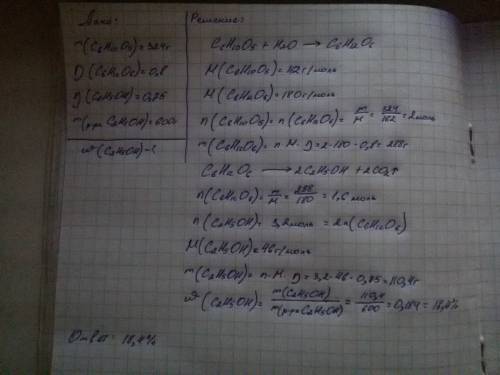 Дано:
m(C6H10O5)=324г
η(C6H12O6)=0,8
η(C2H5OH)=0,75
m(р-ра C2H5OH)=600г
ω(C2H5OH)-?
Решение:
C6H10O5 + H2O → C6H12O6
M(C6H10O5)=162г/моль
M(C6H12O6)=180г/моль
n(C6H10O5)=n(C6H12O6)= m/M = 324/162 = 2моль
m(C6H12O6)= n·M·η=2·180·0,8=288г
C6H12O6 → 2C2H5OH + 2CO2↑
n(C6H12O6)= m/M = 288/180 = 1,6 моль
n(C2H5OH)= 3,2моль = 2n(C6H12O6)
M(C2H5OH)=46г/моль
m(C2H5OH)= n·M·η=3,2·46·0,75=110,4г
ω(C2H5OH)= m(C2H5OH)/m(р-ра C2H5OH) = 110,4/600 = 0,184 = 18,4%
Ответ: 18,4%